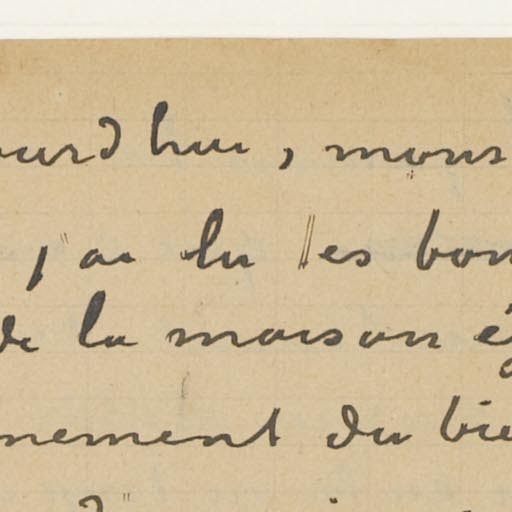 ourd hui, mons
j'ai lu les bon
de la maison ég
nement du bie